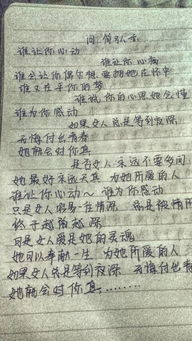 问 简弘亦
谁让你心动
谁让你心痛
谁会让你偶尔想要拥她在怀中
谁又在乎你的梦
谁说你的心思她会懂
谁为你感动
如果女人总是等到夜深
无悔付出青春
她就会对你真
是否女人永远不要多问
她最好永远天真 为她所爱的人
谁让你心动～ 谁为你感动
只是女人容易一往情深 总是为情所
终于越陷越深
可是女人爱是她的灵魂
她可以奉献一生 为她所爱的人
如果女人总是等到夜深 无悔付出青
她就会对你真........